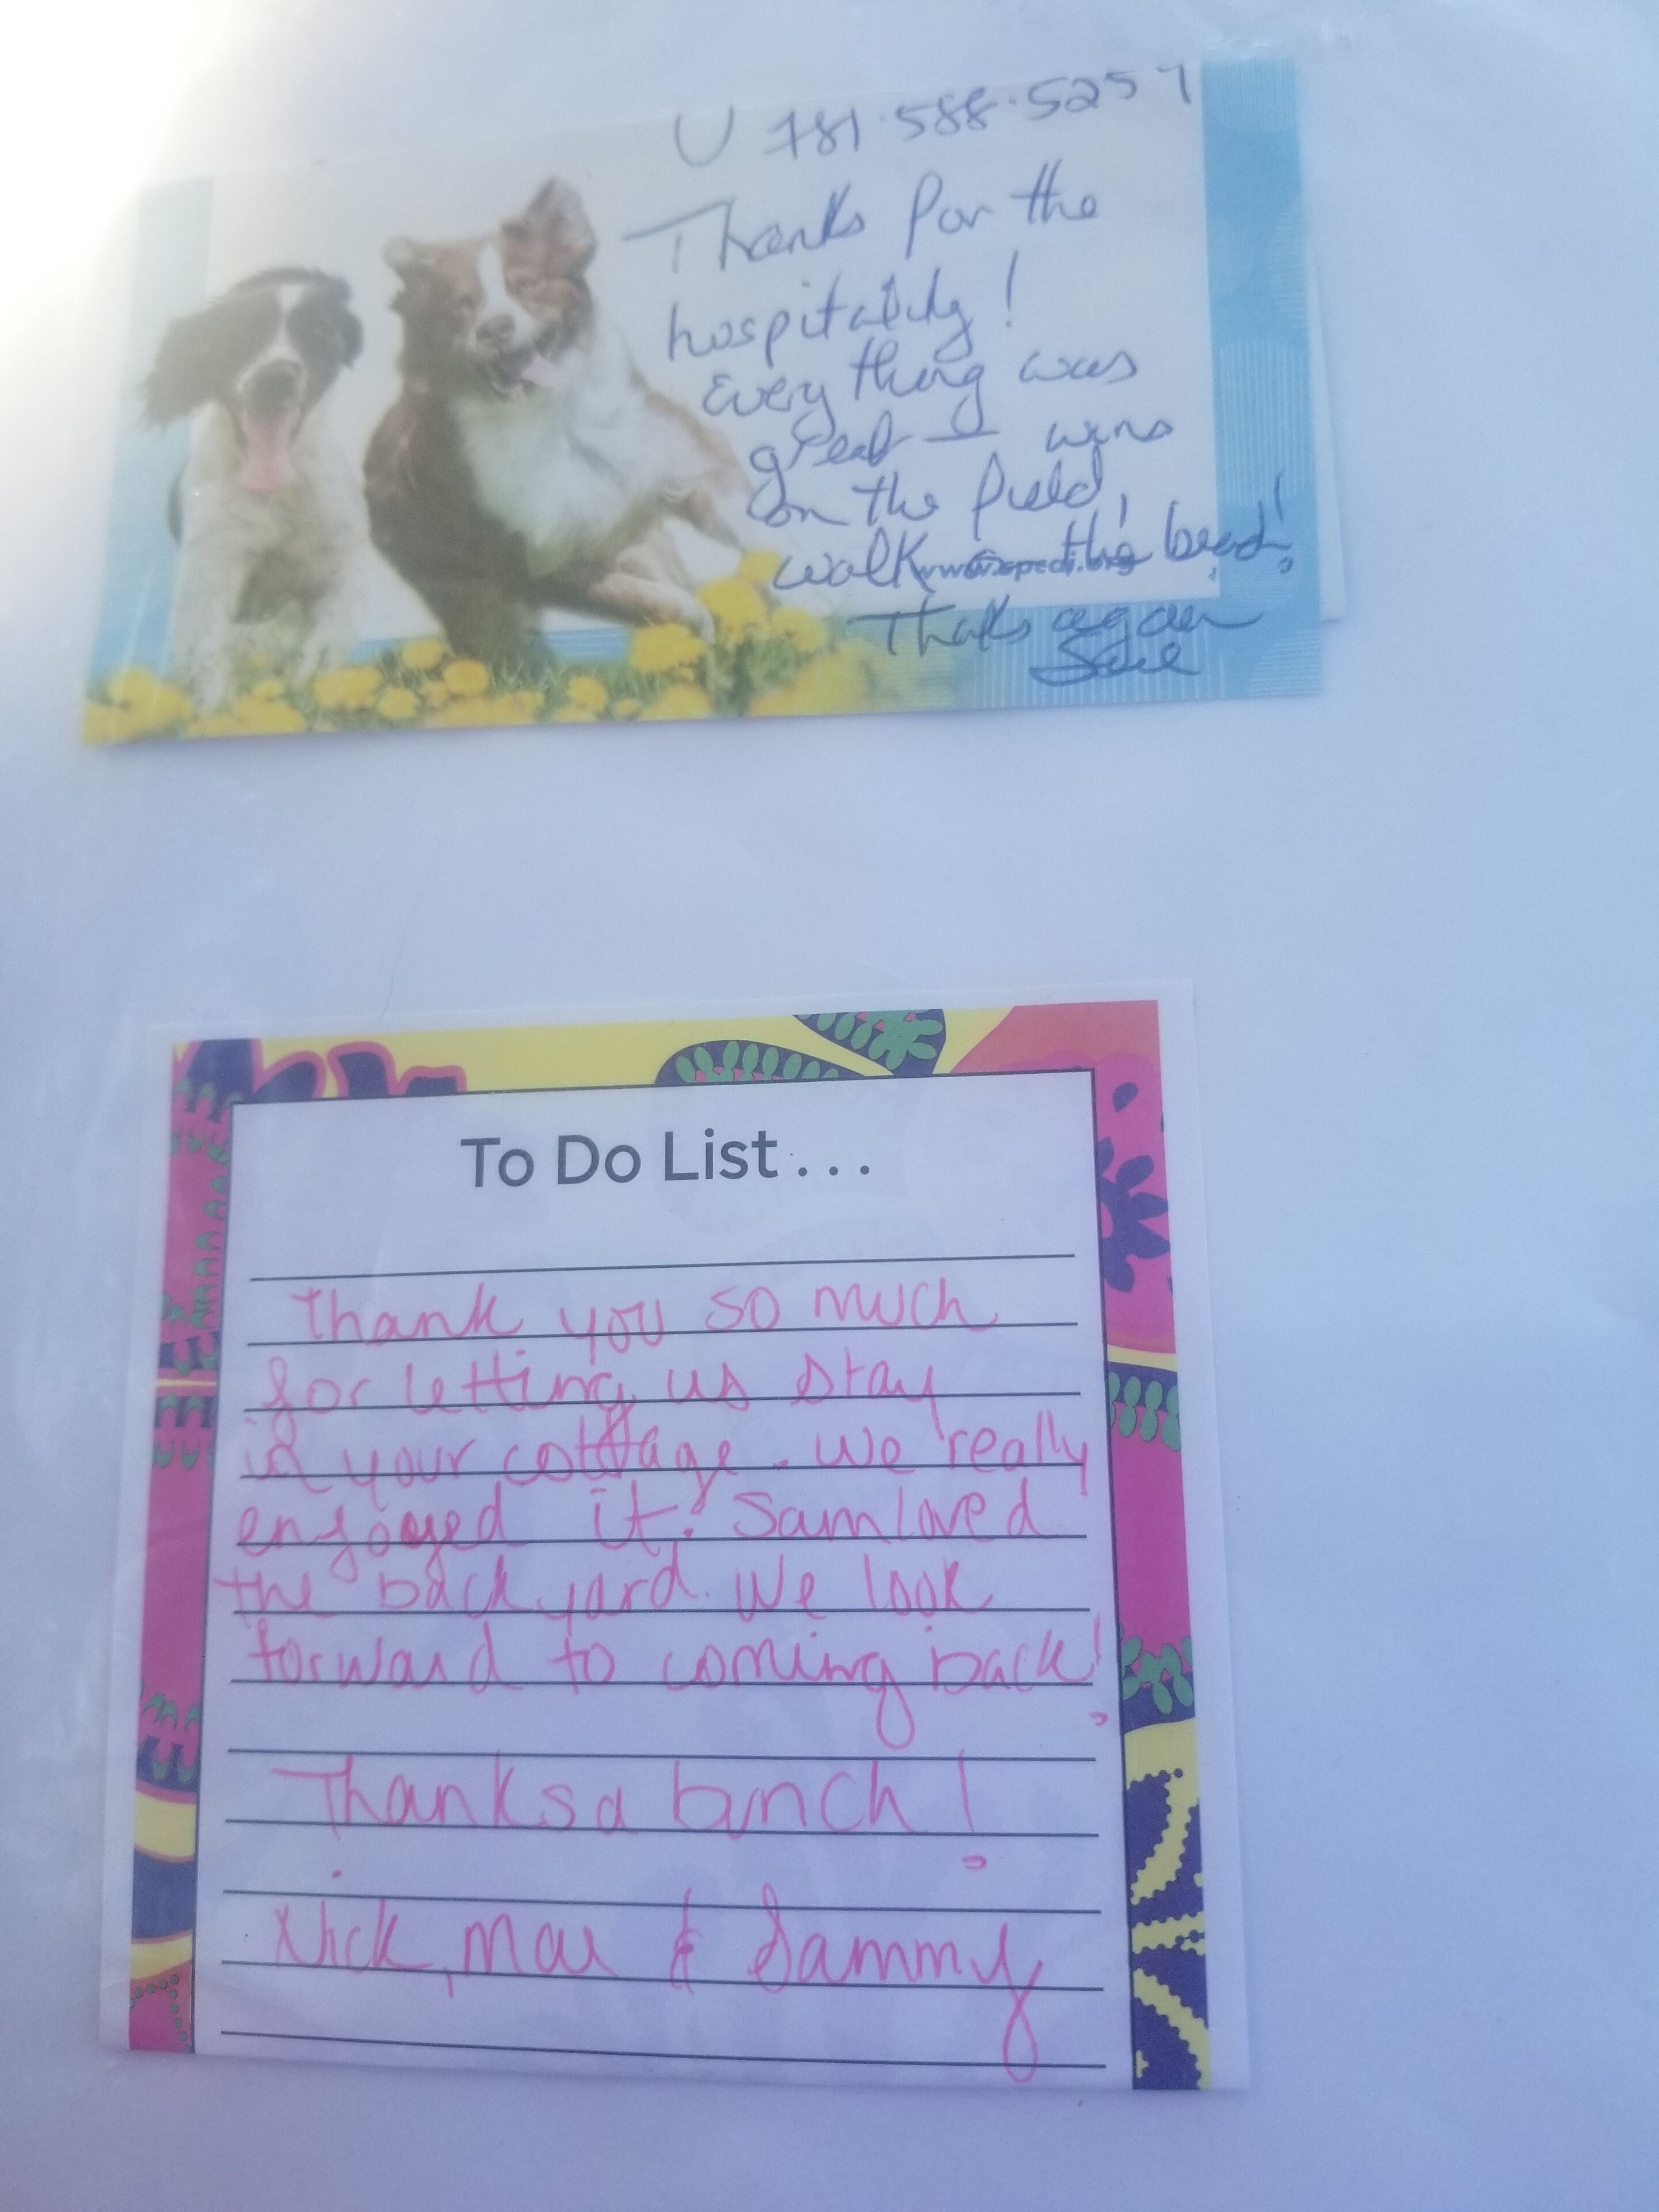 781·588·525
Thanks for the
hospitality!
Everything was
great — wins
on the field,
walk the
www.spedi.org
Thanks again
To Do List...
Thank you so much
for letting us stay
in your cotttage. We really
enjoyed it. Sam loved
the back yard. We look
forward to coming back!
Thanks a bunch!
Nick, Mar & Sammy